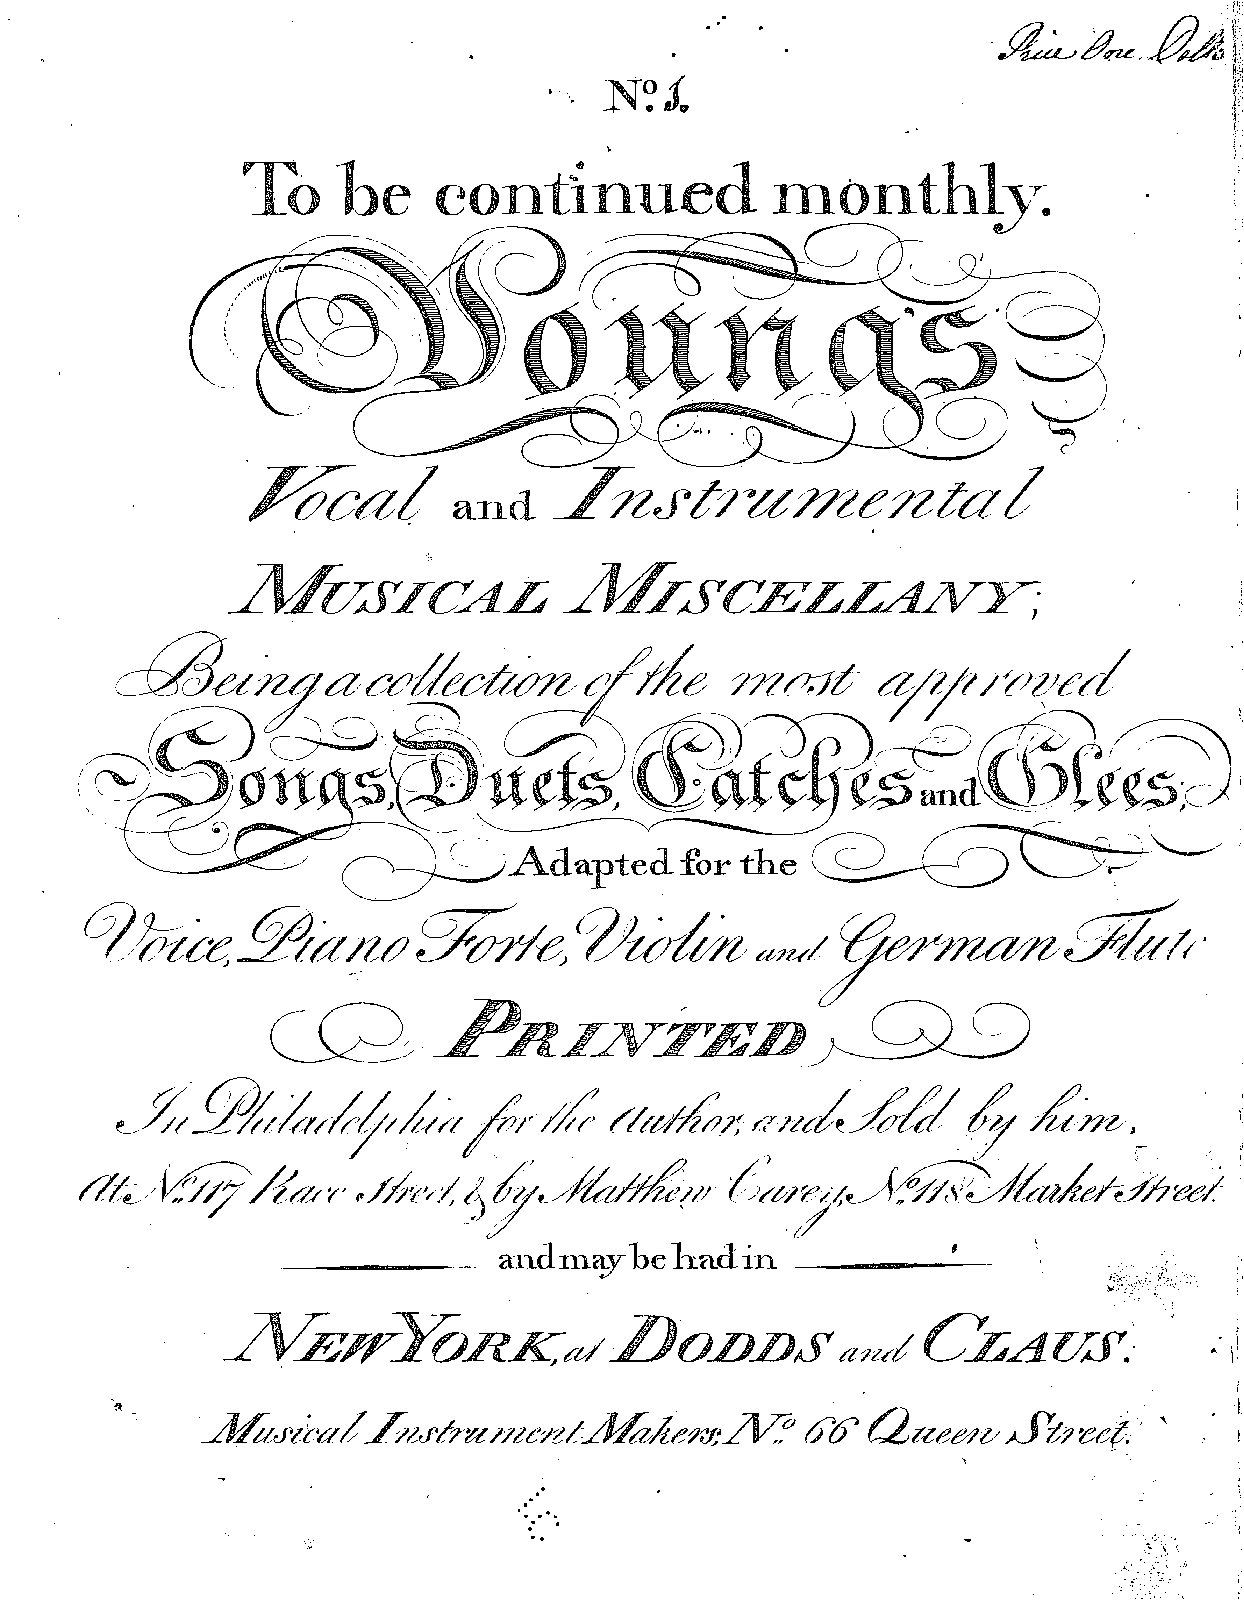 Price One Dolla
No. 1.
To be continued monthly.
Youngs
Vocal and Instrumental
Musical Miscellany;
Being a collection of the most approved
Songs, Duets, Catches and Glees;
Adapted for the
Voice, Piano Forte, Violin and German Flute
Printed
In Philadelphia for the Author, and Sold by him.
At No. 117 Race Street, & by Matthew Carey, No. 118 Market Street.
and may be had in
New York, at Dodds and Claus.
Musical Instrument Makers, No. 66 Queen Street.